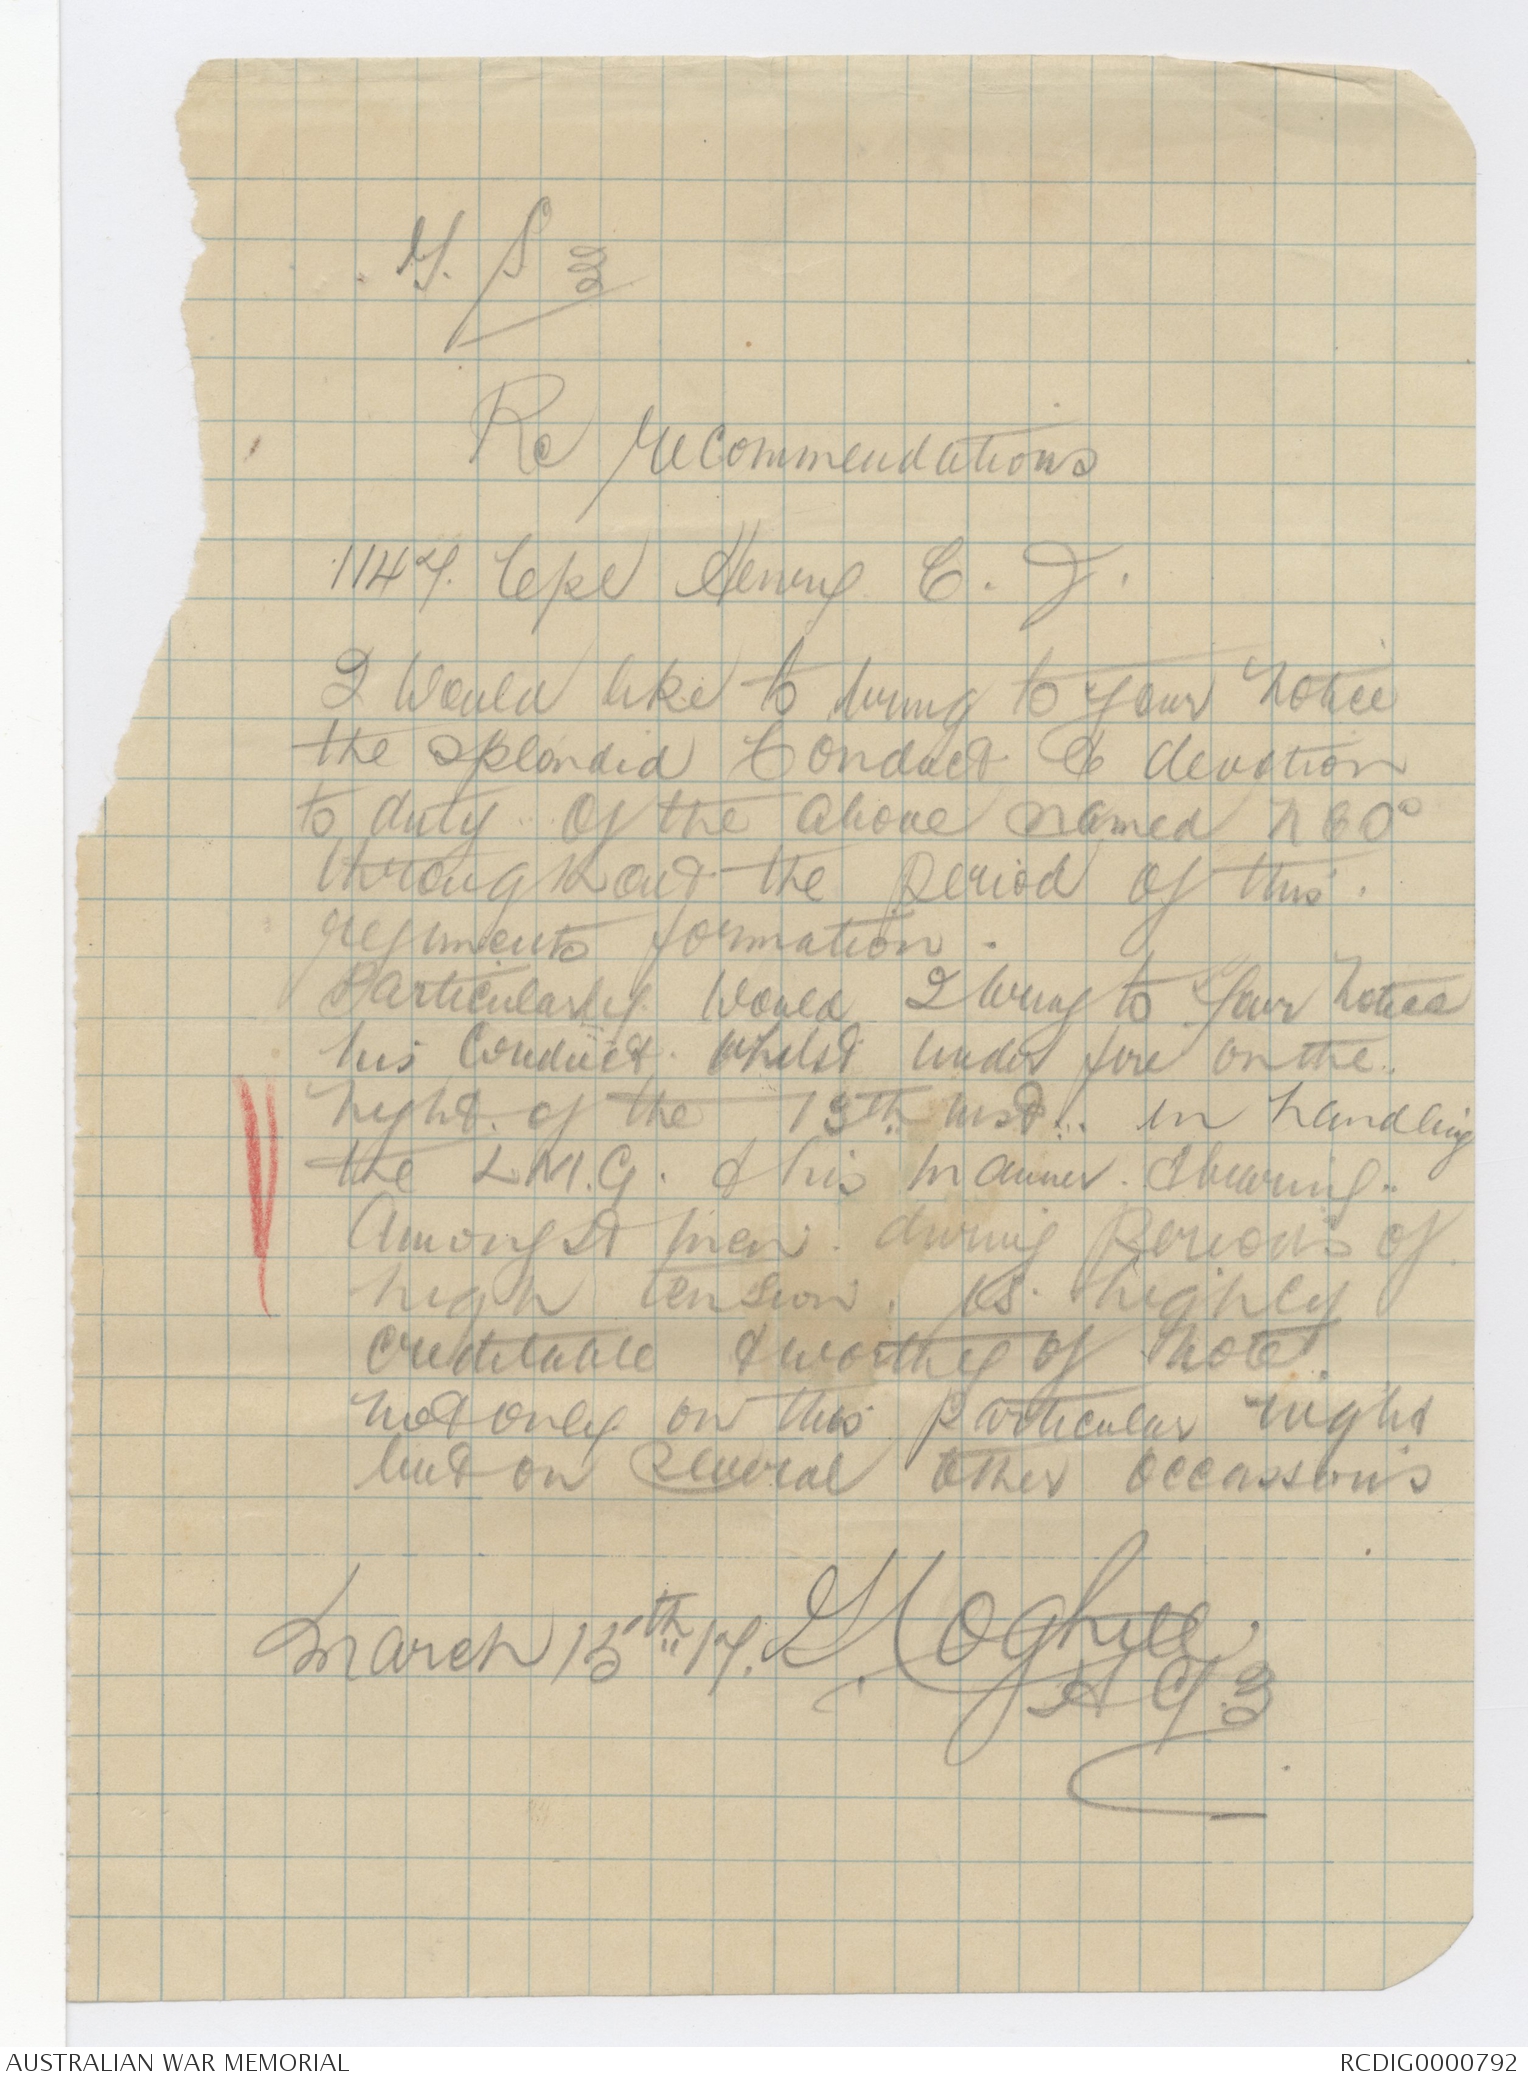 Re recommendations
1147. Cpl Henry C. J.
I Would like to bring to your notice
the splendid Conduct & devotion
to duty of the above named NCO
throughout the period of this.
regiments formation.
Particularly Would I bring to your notice
his Conduct. Whilst under fire on the.
night. of the 13th inst. in handling
the L.M.G. & his manner. & bearing.
Amongst men. during Periods of
high tension. is. highly
creditable & worthy of note.
not only on this particular night
but on several other occassions
March 15th 17.
AUSTRALIAN WAR MEMORIAL
RCDIG0000792